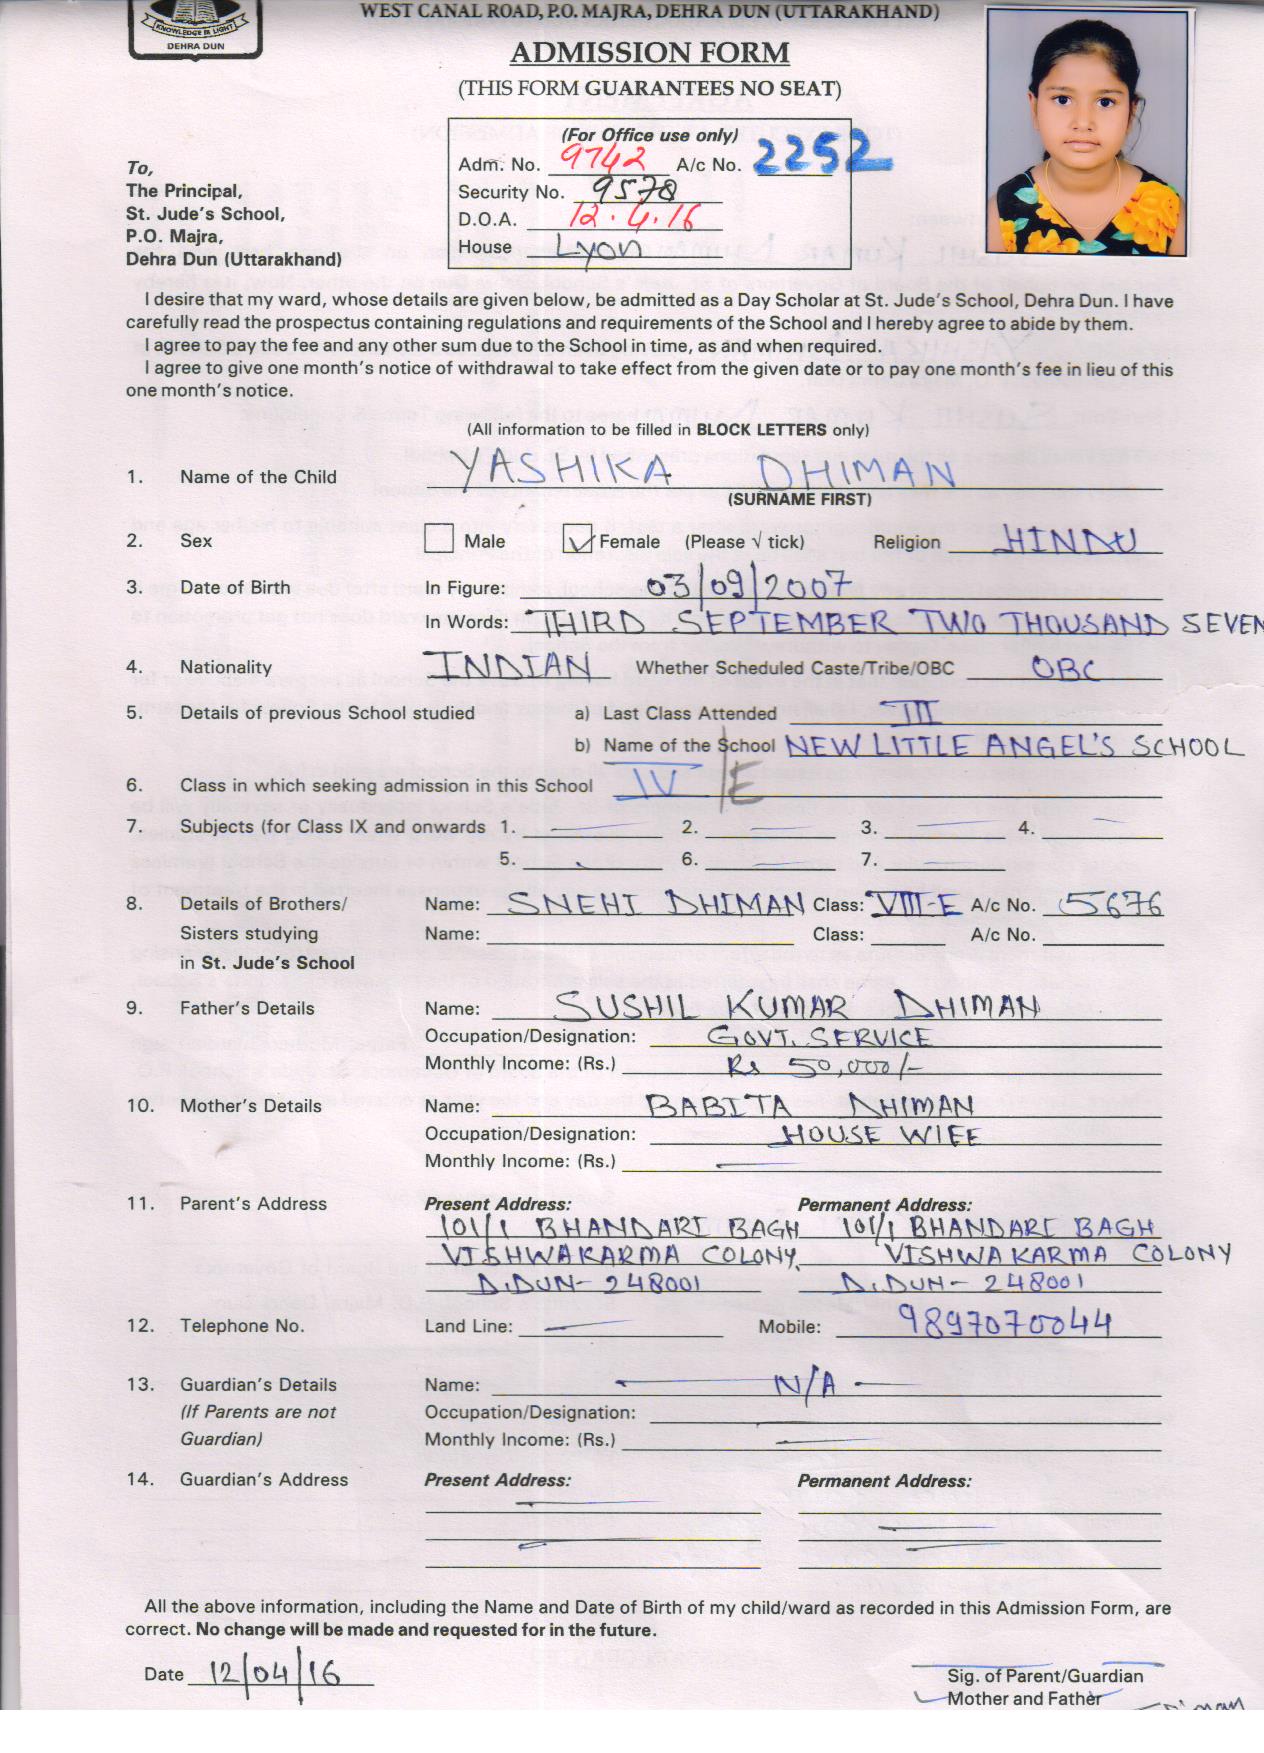 KNOWLEDGE IS LIGHT
DEHRA DUN
WEST CANAL ROAD, P.O. MAJRA, DEHRA DUN (UTTARAKHAND)
ADMISSION FORM
(THIS FORM GUARANTEES NO SEAT)
(For Office use only)
Adm. No. 9742 A/c No. 2252
Security No. 9578
D.O.A. 12.4.16
House Lyon
To,
The Principal,
St. Jude's School,
P.O. Majra,
Dehra Dun (Uttarakhand)
I desire that my ward, whose details are given below, be admitted as a Day Scholar at St. Jude's School, Dehra Dun. I have
carefully read the prospectus containing regulations and requirements of the School and I hereby agree to abide by them.
I agree to pay the fee and any other sum due to the School in time, as and when required.
I agree to give one month's notice of withdrawal to take effect from the given date or to pay one month's fee in lieu of this
one month's notice.
(All information to be filled in BLOCK LETTERS only)
1. Name of the Child YASHIKA DHIMAN
(SURNAME FIRST)
2. Sex Male Female (Please √ tick) Religion HINDU
3. Date of Birth In Figure: 03/09/2007
In Words: THIRD SEPTEMBER TWO THOUSAND SEVEN
4. Nationality INDIAN Whether Scheduled Caste/Tribe/OBC OBC
5. Details of previous School studied a) Last Class Attended III
b) Name of the School NEW LITTLE ANGEL'S SCHOOL
6. Class in which seeking admission in this School IV/E
7. Subjects (for Class IX and onwards 1. 2. 3. 4.
5. 6. 7.
8. Details of Brothers/ Name: SNEHI DHIMAN Class: VIII-E A/c No. 5676
Sisters studying Name: Class: A/c No.
in St. Jude's School
9. Father's Details Name: SUSHIL KUMAR DHIMAN
Occupation/Designation: GOVT. SERVICE
Monthly Income: (Rs.) Rs 50,000/-
10. Mother's Details Name: BABITA DHIMAN
Occupation/Designation: HOUSE WIFE
Monthly Income: (Rs.)
11. Parent's Address Present Address: Permanent Address:
101/1 BHANDARI BAGH 101/1 BHANDARI BAGH
VISHWAKARMA COLONY, VISHWAKARMA COLONY
D.DUN- 248001 D.DUN- 248001
12. Telephone No. Land Line: Mobile: 9897070044
13. Guardian's Details Name: N/A
(If Parents are not Occupation/Designation:
Guardian) Monthly Income: (Rs.)
14. Guardian's Address Present Address: Permanent Address:
All the above information, including the Name and Date of Birth of my child/ward as recorded in this Admission Form, are
correct. No change will be made and requested for in the future.
Date 12/04/16
Sig. of Parent/Guardian
Mother and Father